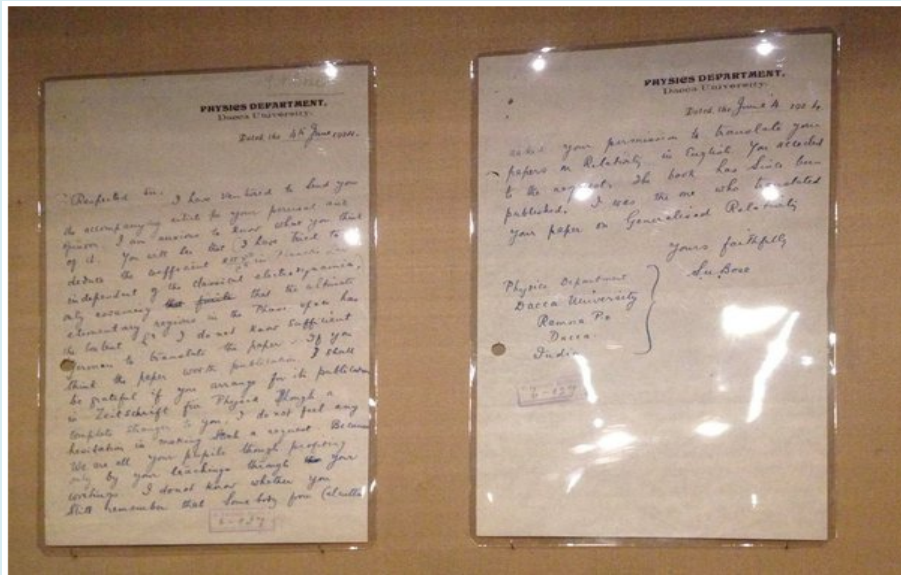 PHYSICS DEPARTMENT,
Dacca University.
Dated, the 4th June 1924.
Respected Sir, I have ventured to send you
the accompanying article for your perusal and
opinion. I am anxious to know what you think
of it. You will see that I have tried to
deduce the coefficient in Planck's Law
independent of the classical electrodynamics,
only assuming that the ultimate
elementary regions in the Phase space has
the content h³. I do not know sufficient
German to translate the paper. If you
think the paper worth publication I shall
be grateful if you arrange for its publication
in Zeitschrift für Physik. Though a
complete stranger to you, I do not feel any
hesitation in making such a request. Because
We are all your pupils though profiting
only by your teachings through your
writings I donot know whether you
Still remember that Somebody from Calcutta
PHYSICS DEPARTMENT,
Dacca University.
Dated, the June 4 1924.
asked your permission to translate your
papers on Relativity in English. You acceded
to the request. The book has since been
published. I was the one who translated
your paper on Generalised Relativity
Yours faithfully
S.N. Bose
Physics Department
Dacca University
Ramna P.o
Dacca
India